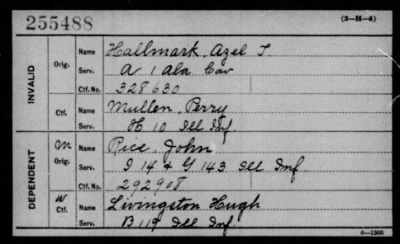 255488 (3-H-4)
INVALID
Orig. Name Hallmark, Azel T
Serv. A 1 Ala Cav
Ctf. No. 328630
Ctf. Name Mullen, Perry
Serv. H 10 Ill Inf.
DEPENDENT
Orig. Name Rice, John
Serv. I 14 & G 143 Ill Inf
Ctf. No. 292908
W Ctf. Name Livingston Hugh
Serv. B 119 Ill Inf
6-1305